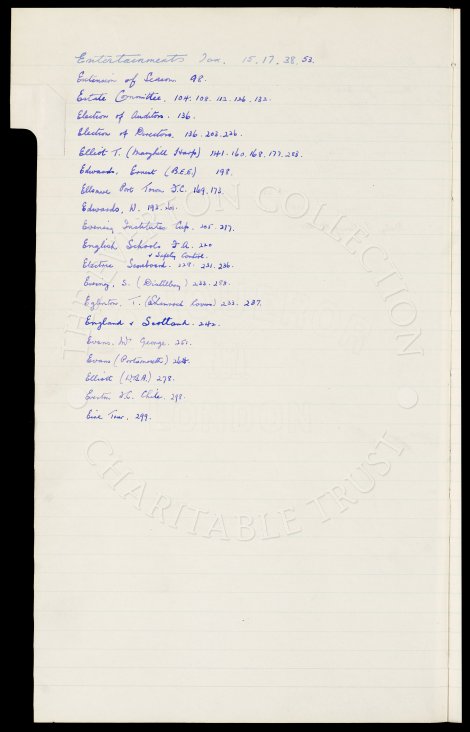 Entertainments Tax. 15, 17, 38, 53.
Extension of Season 98.
Estate Committee. 104. 108. 112. 126. 132.
Election of Auditors. 136.
Election of Directors. 136. 203. 236.
Elliot T. (Maryhill Harp) 141. 160. 168. 177. 203.
Edwards, Ernest (B.E.E.) 198.
Ellesmere Port Town F.C. 169. 173.
Edwards, W. 193. 201.
Evening Institutes Cup. 205. 217.
English Schools F.A. 220
& Safety Control.
Electric Scoreboard. 229. 231. 236.
Everiss, S. 233. 253.
Eglinton, T. (Shamrock Rovers) 233. 237.
England v Scotland. 242.
Evans, Mr George. 251.
Evans (Portsmouth) 268.
Elliott (W.B.A.) 278.
Everton F.C. Chile. 298.
Eire Tour. 299.
THE EVERTON COLLECTION
CHARITABLE TRUST